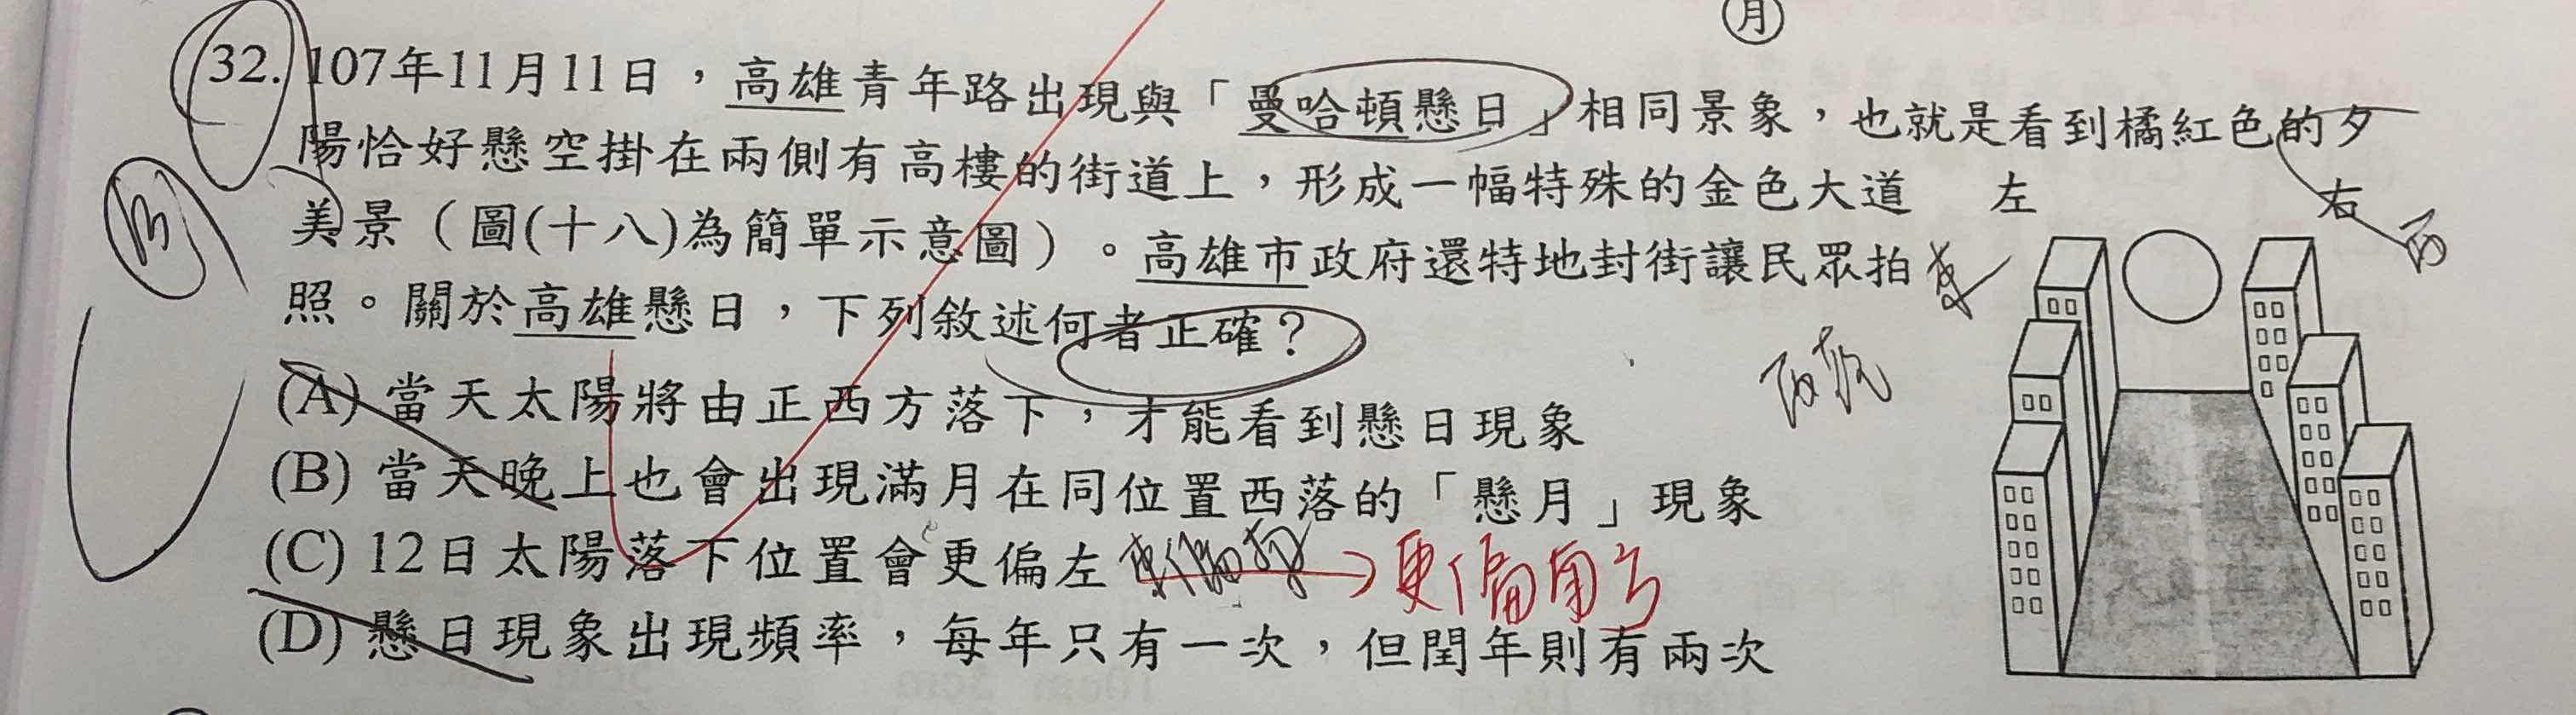 月
32. 107年11月11日，高雄青年路出現與「曼哈頓懸日」相同景象，也就是看到橘紅色的夕
陽恰好懸空掛在兩側有高樓的街道上，形成一幅特殊的金色大道
美景（圖(十八)為簡單示意圖）。高雄市政府還特地封街讓民眾拍
照。關於高雄懸日，下列敘述何者正確？
(A) 當天太陽將由正西方落下，才能看到懸日現象
(B) 當天晚上也會出現滿月在同位置西落的「懸月」現象
(C) 12日太陽落下位置會更偏左
更偏南
(D) 懸日現象出現頻率，每年只有一次，但閏年則有兩次
左 右
西